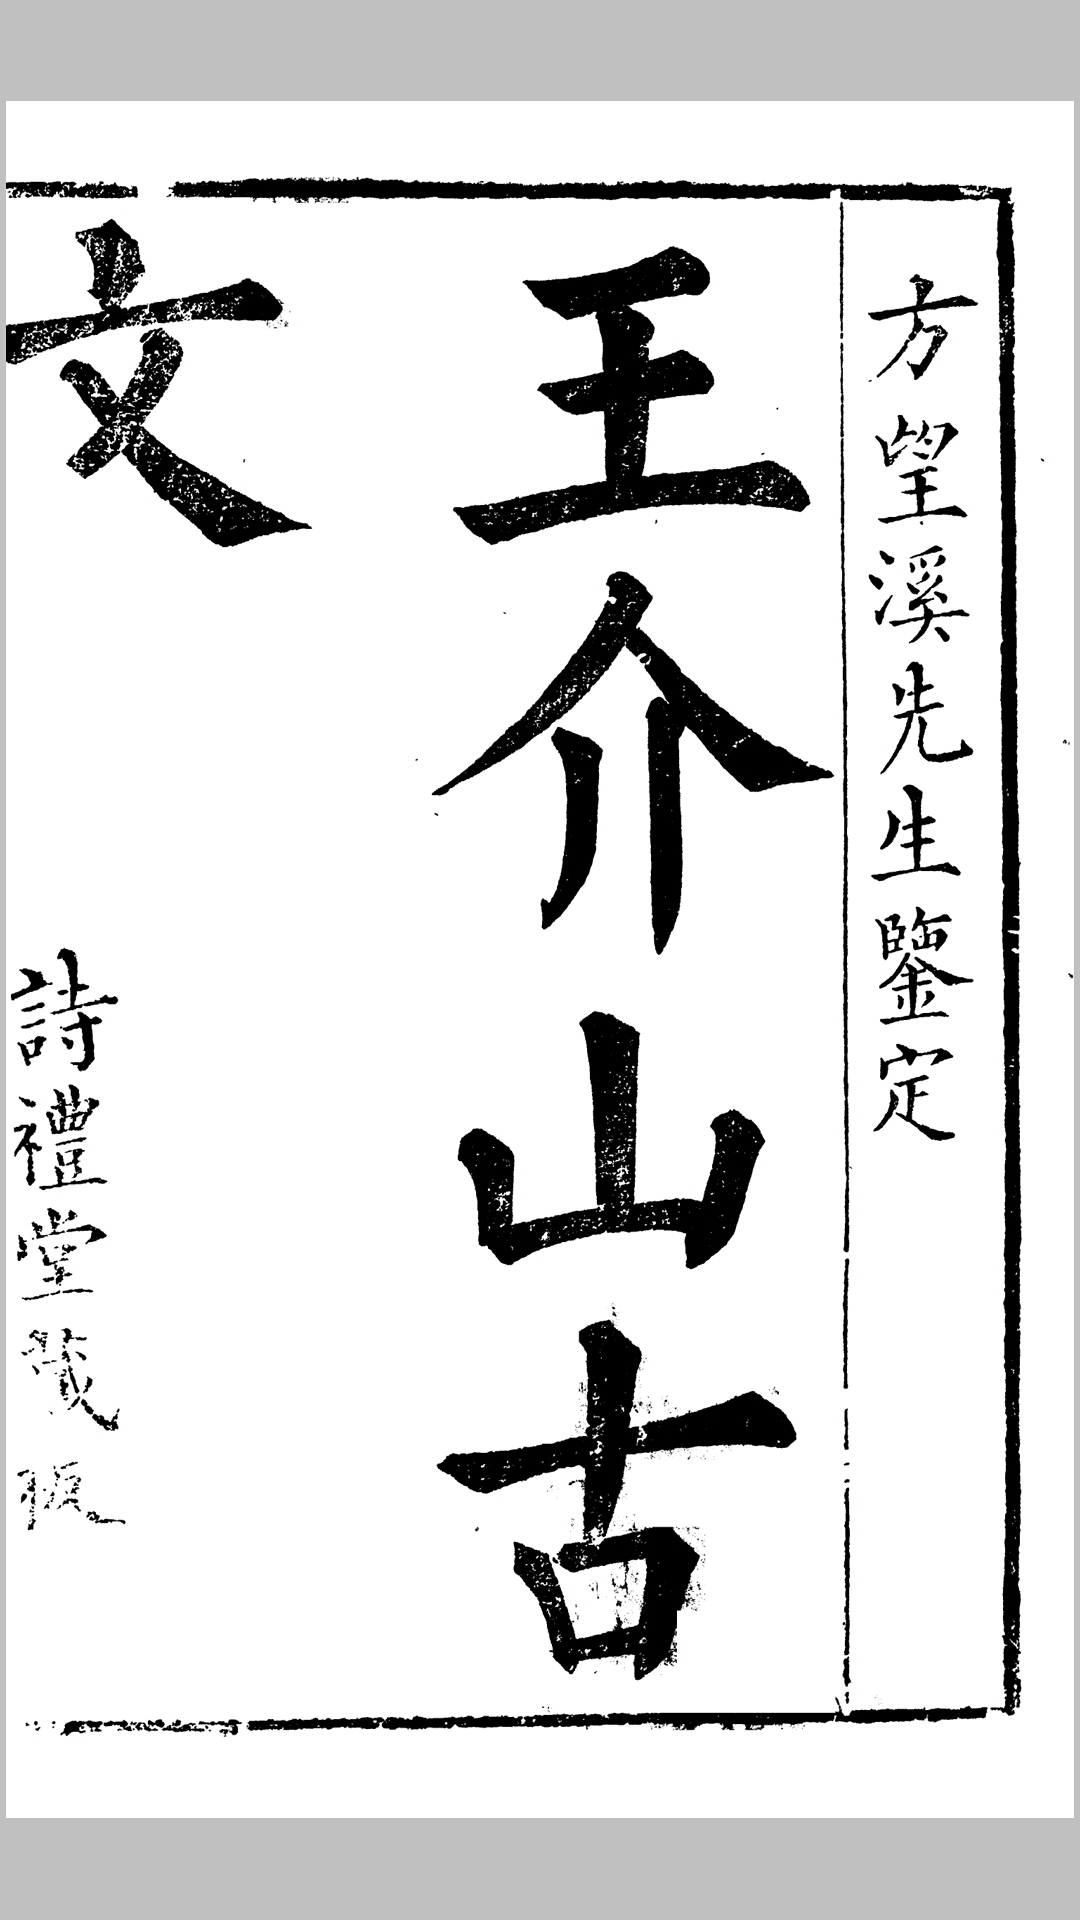 方望溪先生鑒定
王介山古
文
詩禮堂藏板